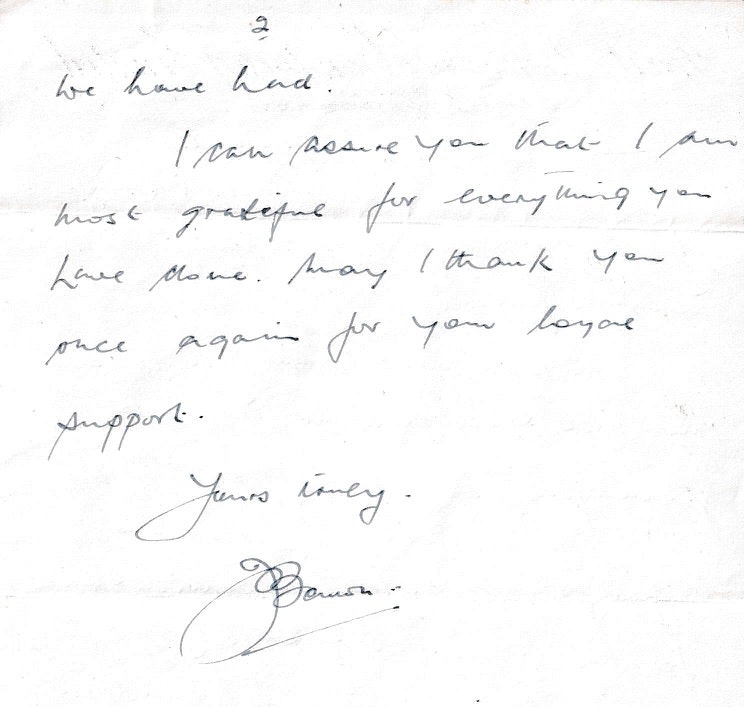 2
we have had.
I can assure you that I am
most grateful for everything you
have done. May I thank you
once again for your loyal
support.
Yours truly.